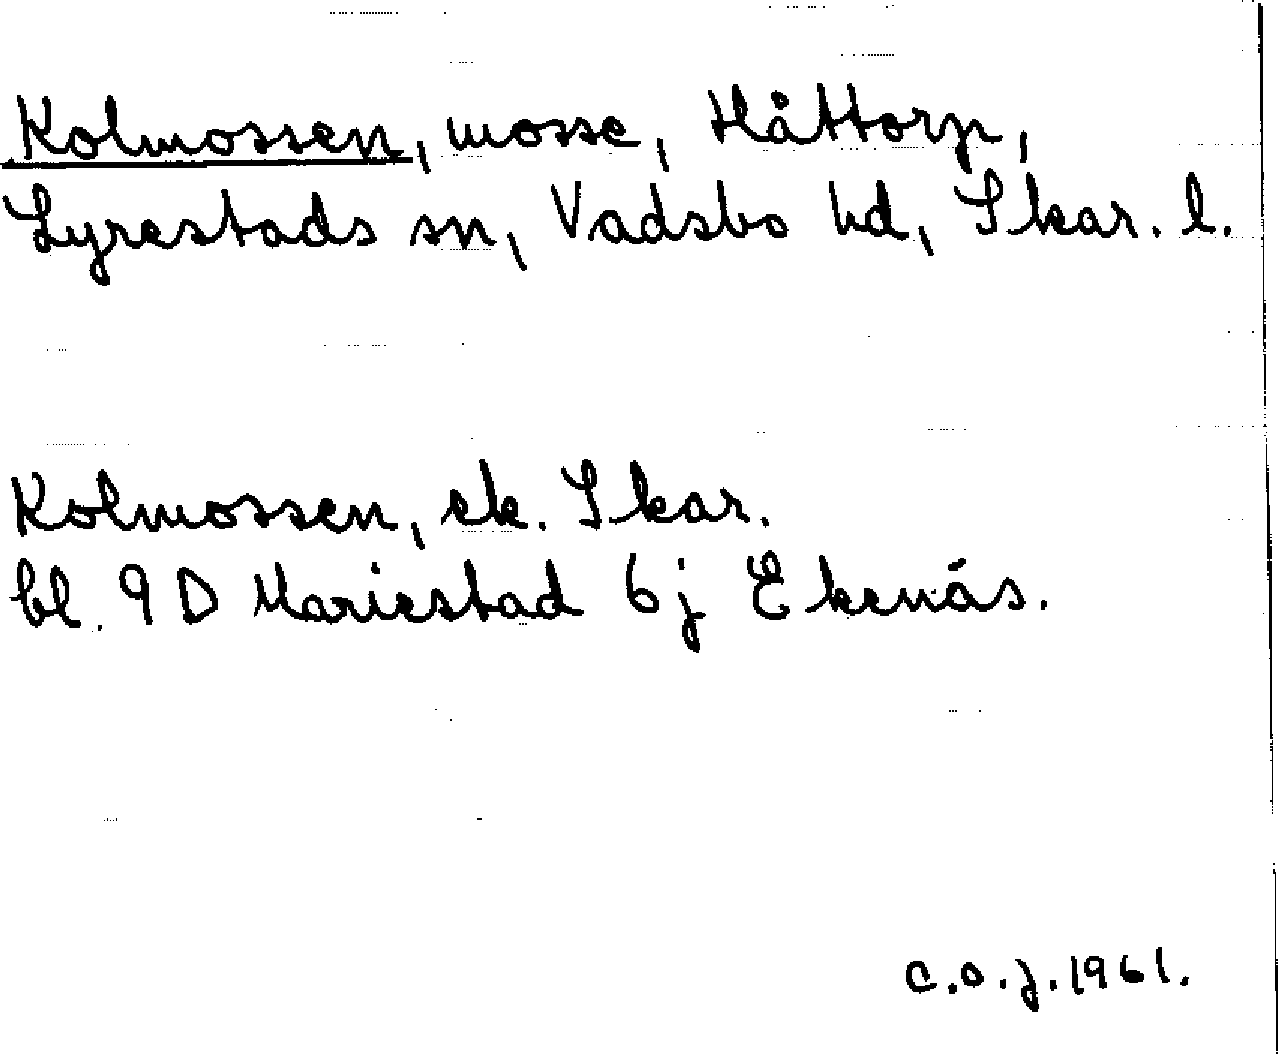 Kolmossen, mosse, Håttorp,
Lyrestads sn, Vadsbo hd, Skar. l.
Kolmossen, ek. Skar.
bl. 9 D Mariestad 6 j Ekenäs.
C.O.J. 1961.